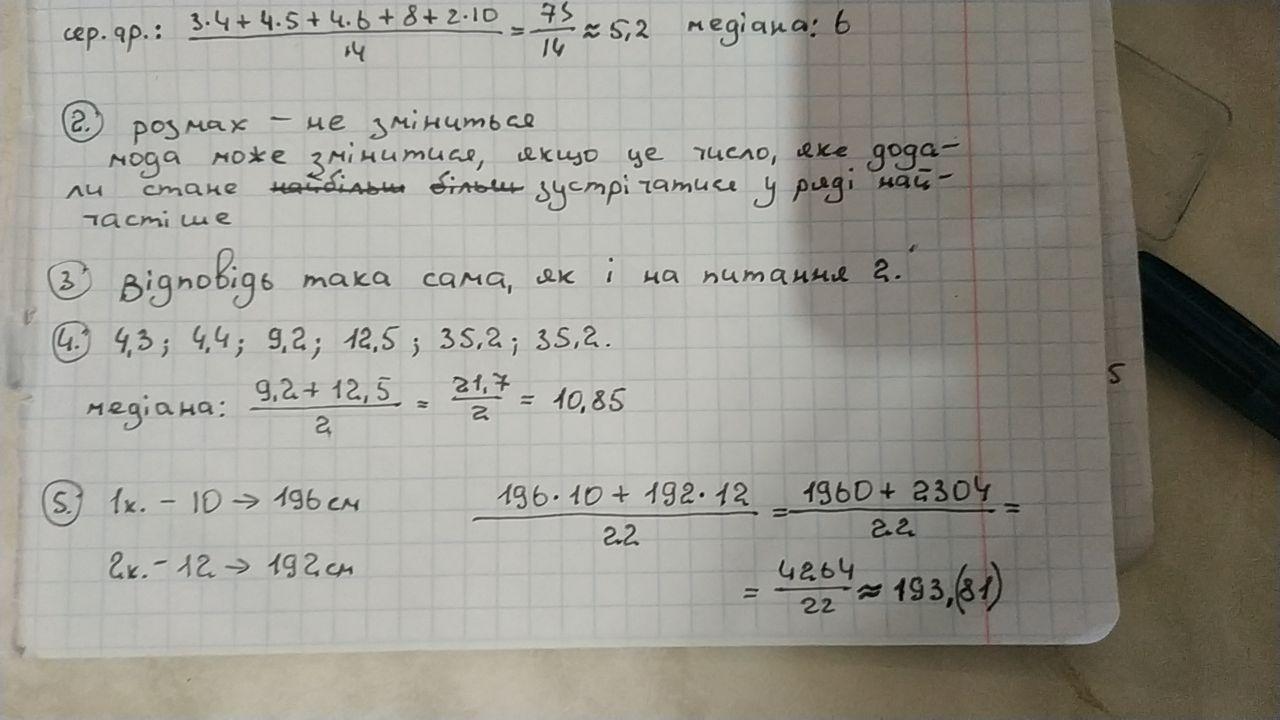 сер. ар.: (3·4+4·5+4·6+8+2·10)/14 = 75/14 ≈ 5,2 медіана: 6
2. розмах – не зміниться
мода може змінитися, якщо це число, яке дода-
ли стане найбільш більш зустрічатися у ряді най-
частіше
3. Відповідь така сама, як і на питання 2.
4. 4,3; 4,4; 9,2; 12,5; 35,2; 35,2.
медіана: (9,2+12,5)/2 = 21,7/2 = 10,85
5
5. 1к. – 10 → 196 см (196·10+192·12)/22 = (1960+2304)/22 =
2к. – 12 → 192 см
= 4264/22 ≈ 193,(81)